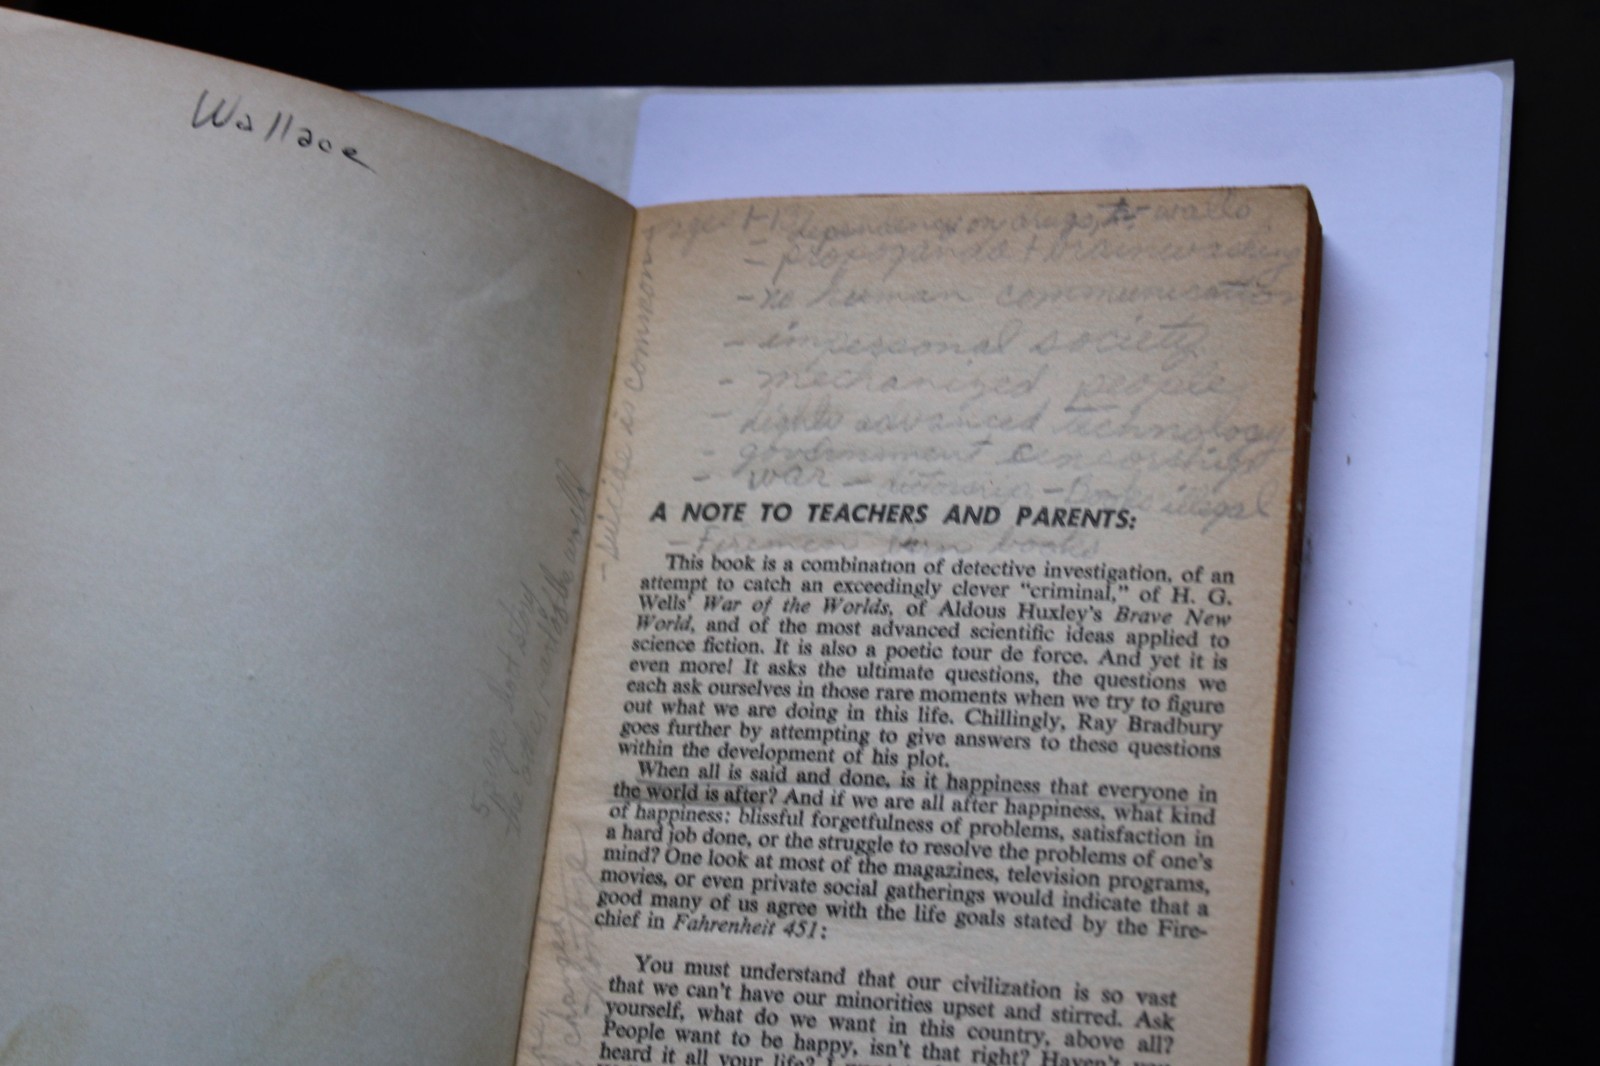 Wallace
dependency on drugs, tv walls
- propoganda + brainwashing
- no human communication
- impersonal society
- mechanized people
- highly advanced technology
- government censorship
- war - dictorship - Books illegal
A NOTE TO TEACHERS AND PARENTS:
- Firemen burn books
This book is a combination of detective investigation, of an
attempt to catch an exceedingly clever "criminal," of H. G.
Wells' War of the Worlds, of Aldous Huxley's Brave New
World, and of the most advanced scientific ideas applied to
science fiction. It is also a poetic tour de force. And yet it is
even more! It asks the ultimate questions, the questions we
each ask ourselves in those rare moments when we try to figure
out what we are doing in this life. Chillingly, Ray Bradbury
goes further by attempting to give answers to these questions
within the development of his plot.
When all is said and done, is it happiness that everyone in
the world is after? And if we are all after happiness, what kind
of happiness: blissful forgetfulness of problems, satisfaction in
a hard job done, or the struggle to resolve the problems of one's
mind? One look at most of the magazines, television programs,
movies, or even private social gatherings would indicate that a
good many of us agree with the life goals stated by the Fire-
chief in Fahrenheit 451:
You must understand that our civilization is so vast
that we can't have our minorities upset and stirred. Ask
yourself, what do we want in this country, above all?
People want to be happy, isn't that right? Haven't you
heard it all your life?
- suicide is common
changed